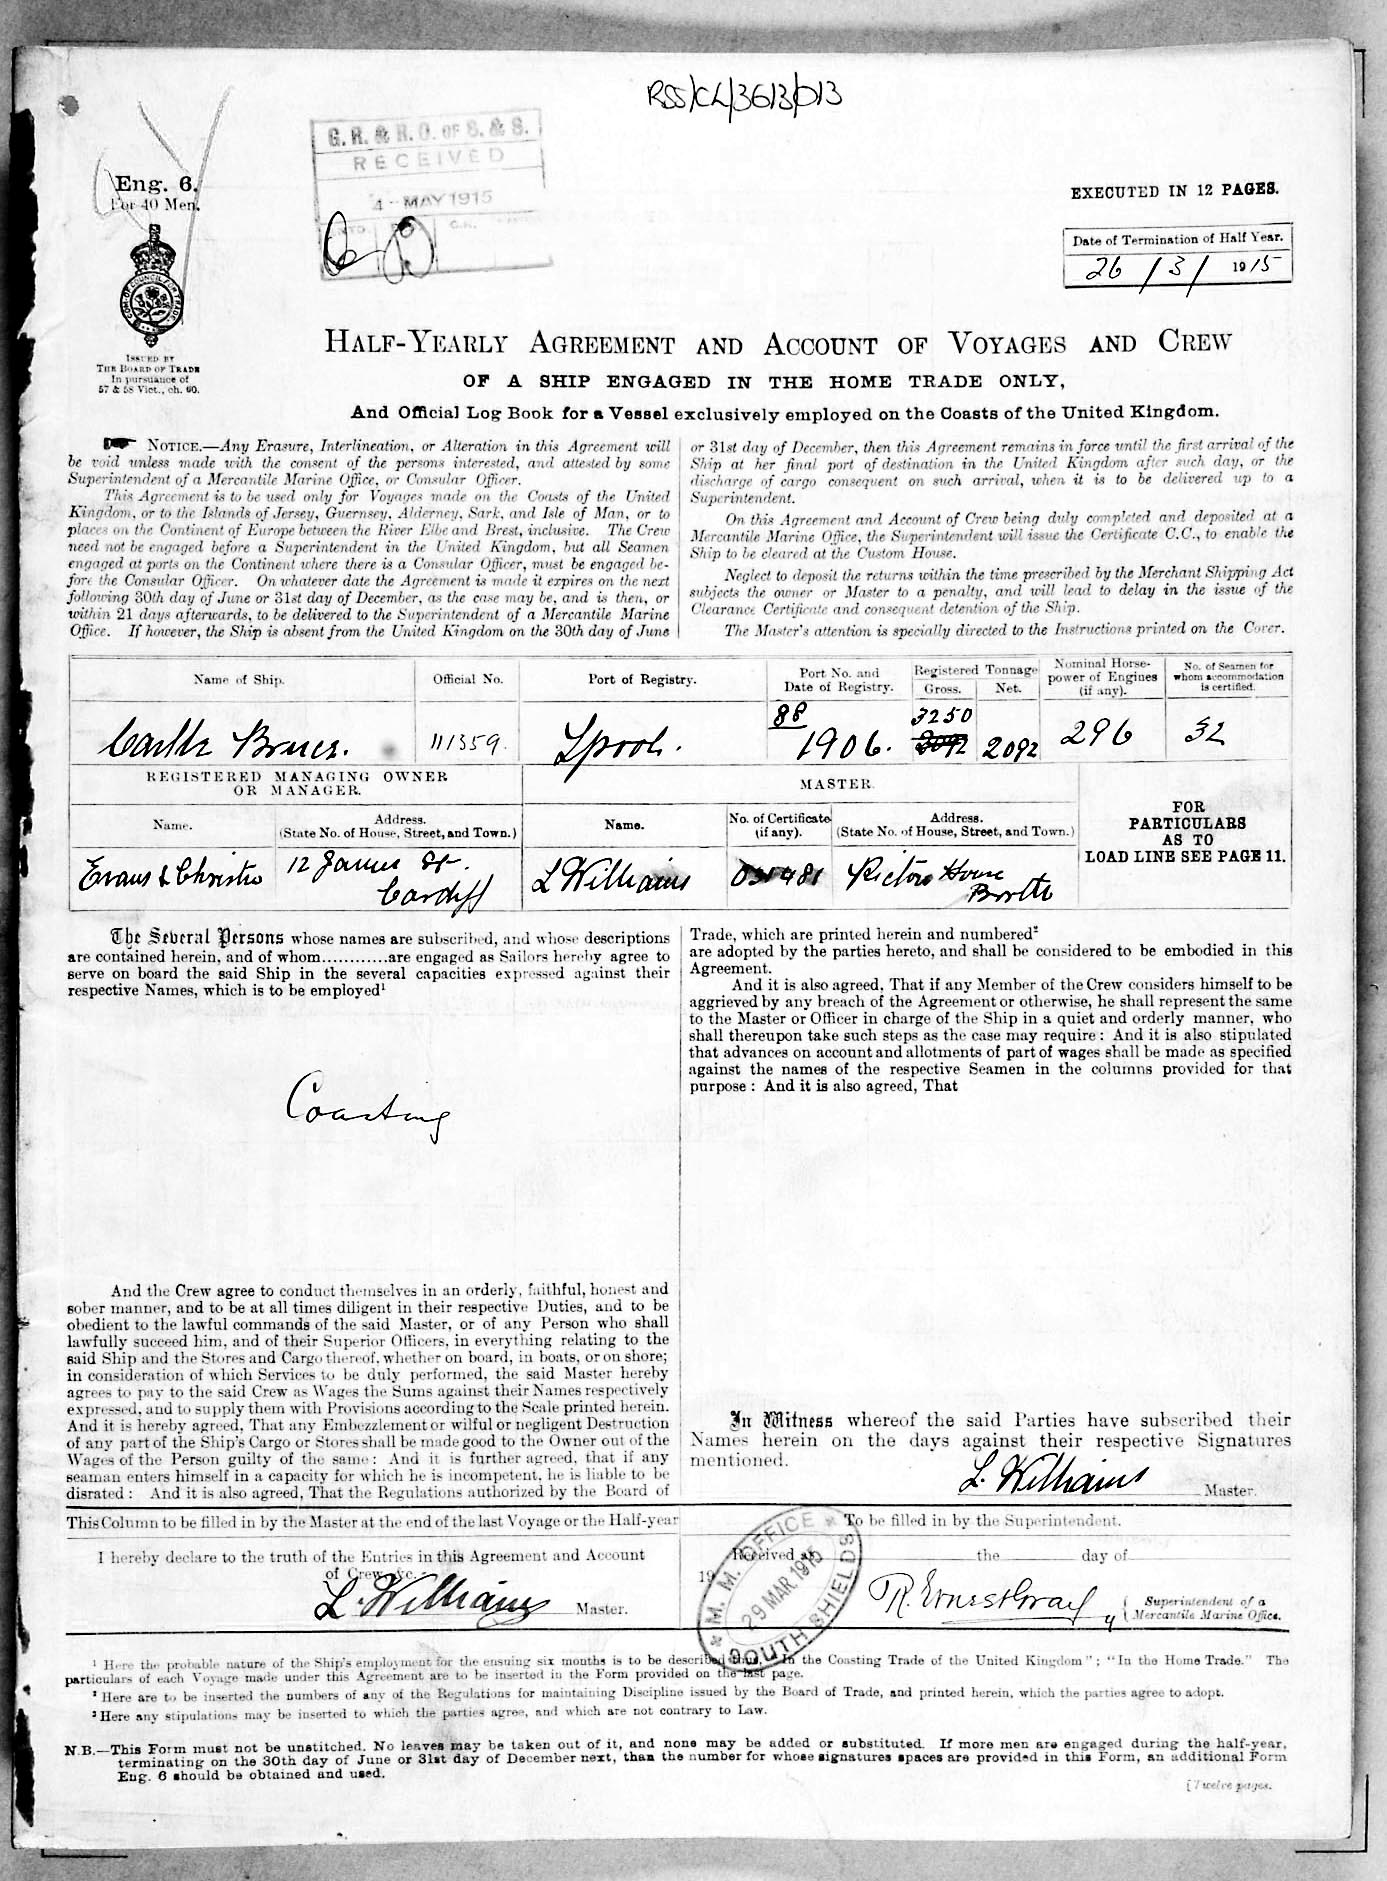 RSS/CL/3613/013
G. R. & R. O. OF S. & S.
RECEIVED
4 - MAY 1915
Eng. 6.
For 40 Men.
EXECUTED IN 12 PAGES.
Date of Termination of Half Year.
26 / 3 / 1915
ISSUED BY
THE BOARD OF TRADE
In pursuance of
57 & 58 Vict., ch. 60.
HALF-YEARLY AGREEMENT AND ACCOUNT OF VOYAGES AND CREW
OF A SHIP ENGAGED IN THE HOME TRADE ONLY,
And Official Log Book for a Vessel exclusively employed on the Coasts of the United Kingdom.
NOTICE.—Any Erasure, Interlineation, or Alteration in this Agreement will
be void unless made with the consent of the persons interested, and attested by some
Superintendent of a Mercantile Marine Office, or Consular Officer.
This Agreement is to be used only for Voyages made on the Coasts of the United
Kingdom, or to the Islands of Jersey, Guernsey, Alderney, Sark, and Isle of Man, or to
places on the Continent of Europe between the River Elbe and Brest, inclusive. The Crew
need not be engaged before a Superintendent in the United Kingdom, but all Seamen
engaged at ports on the Continent where there is a Consular Officer, must be engaged be-
fore the Consular Officer. On whatever date the Agreement is made it expires on the next
following 30th day of June or 31st day of December, as the case may be, and is then, or
within 21 days afterwards, to be delivered to the Superintendent of a Mercantile Marine
Office. If however, the Ship is absent from the United Kingdom on the 30th day of June
or 31st day of December, then this Agreement remains in force until the first arrival of the
Ship at her final port of destination in the United Kingdom after such day, or the
discharge of cargo consequent on such arrival, when it is to be delivered up to a
Superintendent.
On this Agreement and Account of Crew being duly completed and deposited at a
Mercantile Marine Office, the Superintendent will issue the Certificate C.C., to enable the
Ship to be cleared at the Custom House.
Neglect to deposit the returns within the time prescribed by the Merchant Shipping Act
subjects the owner or Master to a penalty, and will lead to delay in the issue of the
Clearance Certificate and consequent detention of the Ship.
The Master's attention is specially directed to the Instructions printed on the Cover.
Name of Ship.
Official No.
Port of Registry.
Port No. and
Date of Registry.
Registered Tonnage
Gross. Net.
Nominal Horse-
power of Engines
(if any).
No. of Seamen for
whom accommodation
is certified.
Castle Bruce.
111359.
Lpool.
88
1906.
3250
2092 2092
296
32
REGISTERED MANAGING OWNER
OR MANAGER.
MASTER.
Name.
Address.
(State No. of House, Street, and Town.)
Name.
No. of Certificate
(if any).
Address.
(State No. of House, Street, and Town.)
FOR
PARTICULARS
AS TO
LOAD LINE SEE PAGE 11.
Evans & Christie
12 James St.
Cardiff
L Williams
035481
House
Borth
The Several Persons whose names are subscribed, and whose descriptions
are contained herein, and of whom............are engaged as Sailors hereby agree to
serve on board the said Ship in the several capacities expressed against their
respective Names, which is to be employed¹
Coasting
And the Crew agree to conduct themselves in an orderly, faithful, honest and
sober manner, and to be at all times diligent in their respective Duties, and to be
obedient to the lawful commands of the said Master, or of any Person who shall
lawfully succeed him, and of their Superior Officers, in everything relating to the
said Ship and the Stores and Cargo thereof, whether on board, in boats, or on shore;
in consideration of which Services to be duly performed, the said Master hereby
agrees to pay to the said Crew as Wages the Sums against their Names respectively
expressed, and to supply them with Provisions according to the Scale printed herein.
And it is hereby agreed, That any Embezzlement or wilful or negligent Destruction
of any part of the Ship's Cargo or Stores shall be made good to the Owner out of the
Wages of the Person guilty of the same: And it is further agreed, that if any
seaman enters himself in a capacity for which he is incompetent, he is liable to be
disrated: And it is also agreed, That the Regulations authorized by the Board of
Trade, which are printed herein and numbered²
are adopted by the parties hereto, and shall be considered to be embodied in this
Agreement.
And it is also agreed, That if any Member of the Crew considers himself to be
aggrieved by any breach of the Agreement or otherwise, he shall represent the same
to the Master or Officer in charge of the Ship in a quiet and orderly manner, who
shall thereupon take such steps as the case may require: And it is also stipulated
that advances on account and allotments of part of wages shall be made as specified
against the names of the respective Seamen in the columns provided for that
purpose: And it is also agreed, That
In Witness whereof the said Parties have subscribed their
Names herein on the days against their respective Signatures
mentioned.
L. Williams Master.
This Column to be filled in by the Master at the end of the last Voyage or the Half-year
I hereby declare to the truth of the Entries in this Agreement and Account
of Crew, &c.
L. Williams Master.
To be filled in by the Superintendent.
Received at the day of
19
M. M. OFFICE
29 MAR. 1915
SOUTH SHIELDS
R. Ernest Gray
Superintendent of a
Mercantile Marine Office.
¹ Here the probable nature of the Ship's employment for the ensuing six months is to be described thus, "In the Coasting Trade of the United Kingdom"; "In the Home Trade." The
particulars of each Voyage made under this Agreement are to be inserted in the Form provided on the last page.
² Here are to be inserted the numbers of any of the Regulations for maintaining Discipline issued by the Board of Trade, and printed herein, which the parties agree to adopt.
³ Here any stipulations may be inserted to which the parties agree, and which are not contrary to Law.
N.B.—This Form must not be unstitched. No leaves may be taken out of it, and none may be added or substituted. If more men are engaged during the half-year,
terminating on the 30th day of June or 31st day of December next, than the number for whose signatures spaces are provided in this Form, an additional Form
Eng. 6 should be obtained and used.
[Twelve pages.